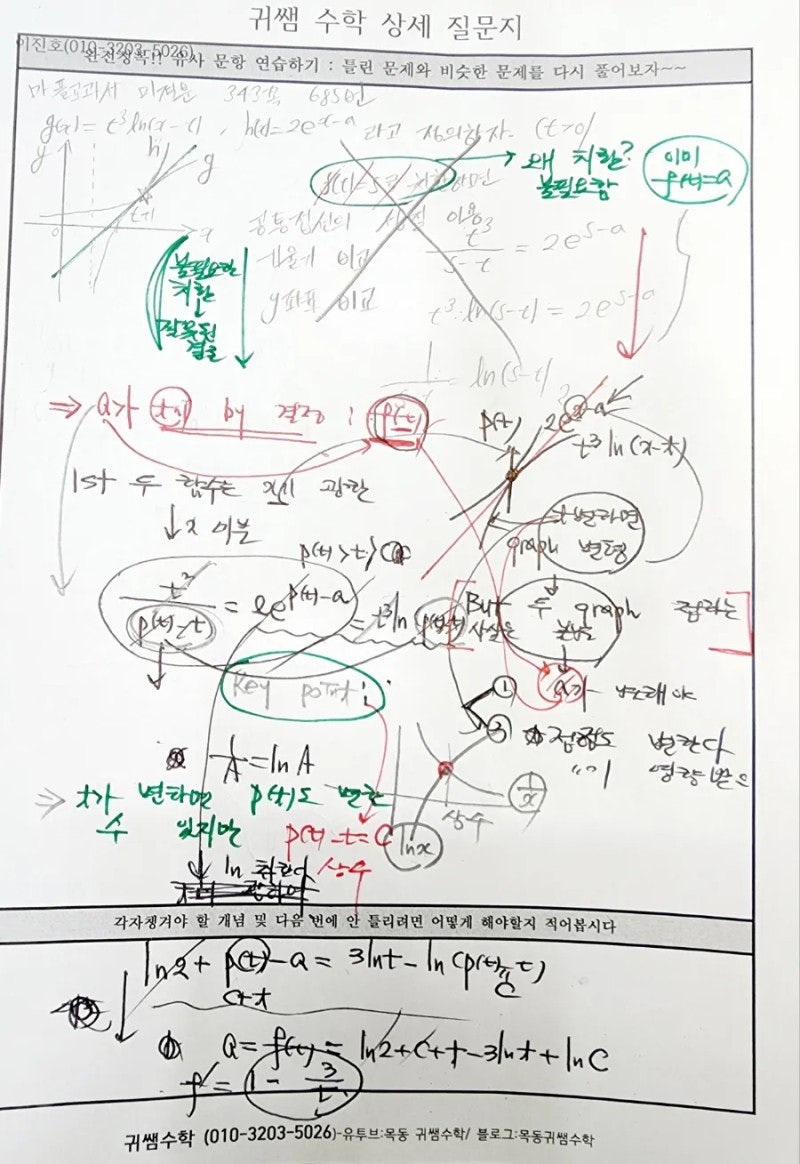 귀쌤 수학 상세 질문지
이진호(010-3203-5026)
완전정복!! 유사 문항 연습하기 : 틀린 문제와 비슷한 문제를 다시 풀어보자~~
마플교과서 미적분 343쪽 685번
g(x) = t³ln(x-t), h(x) = 2e^(x-a) 라고 정의하자. (t>0)
y h g
0 t t+1 x
치환하면
→ 왜 치환?
불필요함
이미
f(t)=a
공통접선의 성질 이용
기울기 비교
t³/(s-t) = 2e^(s-a)
y좌표 비교
t³·ln(s-t) = 2e^(s-a)
불필요한
치환
잘못된
결론
1/(s-t) = ln(s-t)
⇒ a가 t에 by 결정 : f(t)
p(t) 2e^(x-a)
t³ln(x-t)
1st 두 함수는 x에 관한
↓x 미분
t 변하면
graph 변형
p(t)>t>0
t³/(p(t)-t) = 2e^(p(t)-a) = t³ln(p(t)-t)
But 두 graph 접하는
사실은 불변
↓
a가 변해야
Key point :
①
② 접점도 변한다
〃에 영향 받음
1/A = ln A
1/x
상수
ln x
⇒ t가 변하면 p(t)도 변할
수 있지만
p(t)-t=C
상수
ln 취한다
각자챙겨야 할 개념 및 다음 번에 안 틀리려면 어떻게 해야할지 적어봅시다
ln2 + p(t)-a = 3lnt - ln(p(t)-t)
C+t
C
a = f(t) = ln2+C+t-3lnt+lnC
f' = 1 - 3/t
귀쌤수학 (010-3203-5026)-유투브:목동 귀쌤수학/ 블로그:목동귀쌤수학